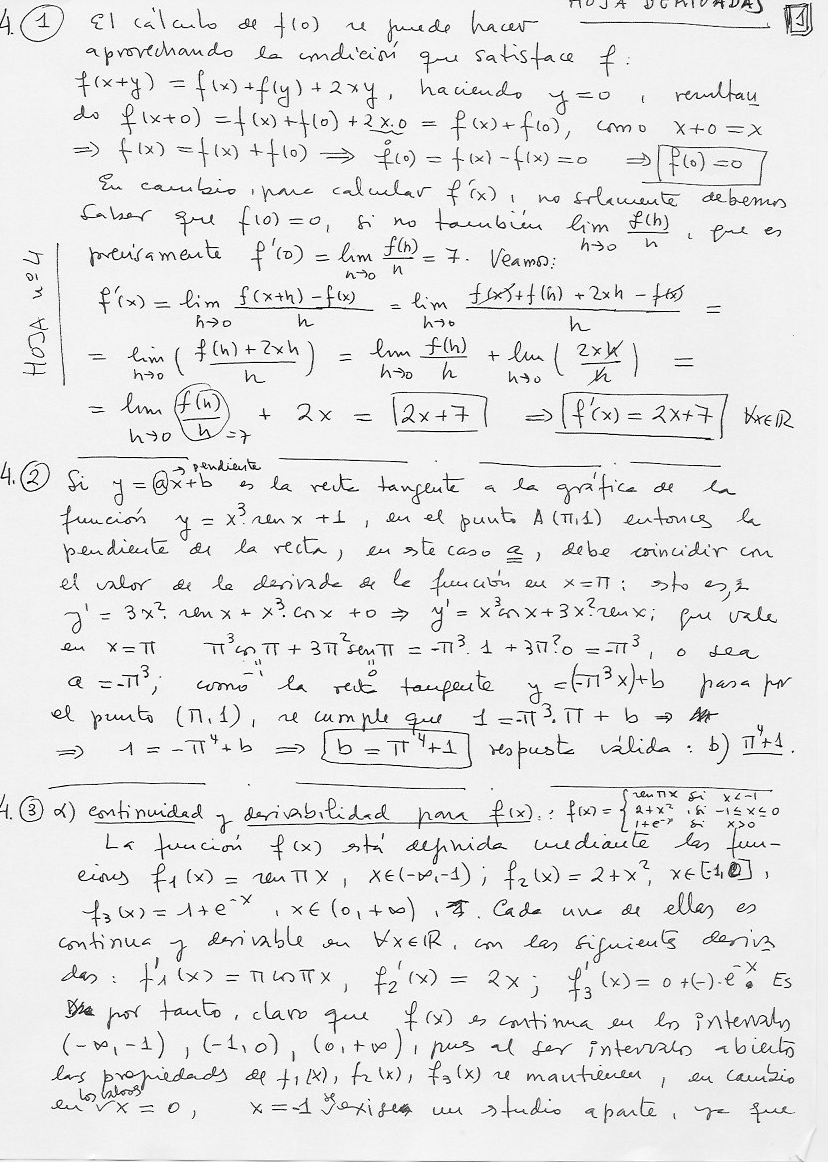 HOJA DERIVADAS 1
4. 1 El cálculo de f(0) se puede hacer
aprovechando la condición que satisface f:
f(x+y) = f(x)+f(y)+2xy, haciendo y=0, resultan
do f(x+0) = f(x)+f(0)+2x·0 = f(x)+f(0), como x+0=x
0
⇒ f(x) = f(x)+f(0) ⇒ f(0) = f(x)-f(x) = 0 ⇒ f(0)=0
En cambio, para calcular f'(x), no solamente debemos
saber que f(0)=0, si no también lim h→0 f(h)/h, que es
precisamente f'(0) = lim h→0 f(h)/h = 7. Veamos:
HOJA nº 4
f'(x) = lim h→0 (f(x+h)-f(x))/h = lim h→0 (f(x)+f(h)+2xh-f(x))/h =
= lim h→0 ((f(h)+2xh)/h) = lim h→0 f(h)/h + lim h→0 (2xh/h) =
= lim h→0 f(h)/h =7 + 2x = 2x+7 ⇒ f'(x) = 2x+7 ∀x∈ℝ
4. 2 Si y = ax+b es la recta tangente a la gráfica de la
→ pendiente
función y = x³·sen x + 1, en el punto A(π,1) entonces la
pendiente de la recta, en este caso a, debe coincidir con
el valor de la derivada de la función en x=π: esto es,
y' = 3x²·sen x + x³·cos x + 0 ⇒ y' = x³cos x + 3x²·sen x; que vale
en x=π π³cos π + 3π²sen π = -π³·1 + 3π²·0 = -π³, o sea
a = -π³; como -1 la recta 0 tangente y = (-π³x)+b pasa por
el punto (π,1), se cumple que 1 = -π³·π + b ⇒
⇒ 1 = -π⁴+b ⇒ b = π⁴+1 respuesta válida: b) π⁴+1.
4. 3 α) continuidad y derivabilidad para f(x).: f(x) = { sen πx si x<-1
2+x², si -1≤x≤0
1+e⁻ˣ si x>0
La función f(x) está definida mediante las fun-
ciones f₁(x) = sen πx, x∈(-∞,-1); f₂(x) = 2+x², x∈[-1,0],
f₃(x) = 1+e⁻ˣ, x∈(0,+∞). Cada una de ellas es
continua y derivable en ∀x∈ℝ, con las siguientes deriva
das: f₁'(x) = π cos πx, f₂'(x) = 2x; f₃'(x) = 0+(-)·e⁻ˣ. Es
por tanto, claro que f(x) es continua en los intervalos
(-∞,-1), (-1,0), (0,+∞), pues al ser intervalos abiertos
las propiedades de f₁(x), f₂(x), f₃(x) se mantienen, en cambio
en los valores x=0, x=-1 se exige un studio aparte, ya que